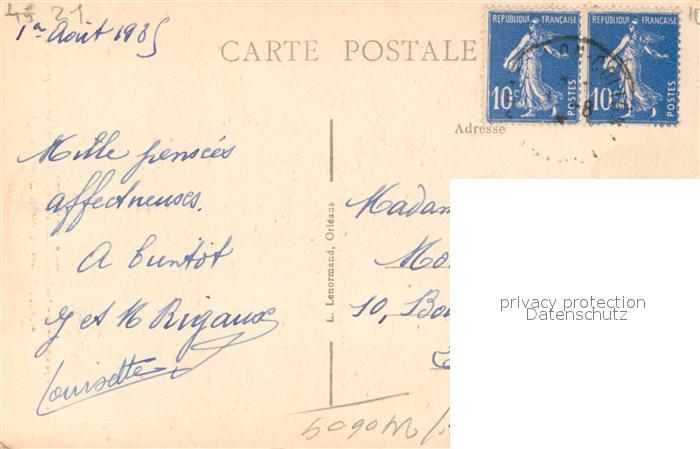 45 21
1er Août 1935
CARTE POSTALE
REPUBLIQUE FRANÇAISE
10c POSTES
REPUBLIQUE FRANÇAISE
10c POSTES
Adresse
Mille pensées
affectueuses.
A bientôt
et M Rigaux
Louisette
L. Lenormand, Orléans
Madam
Mo
10, Bou
privacy protection
Datenschutz